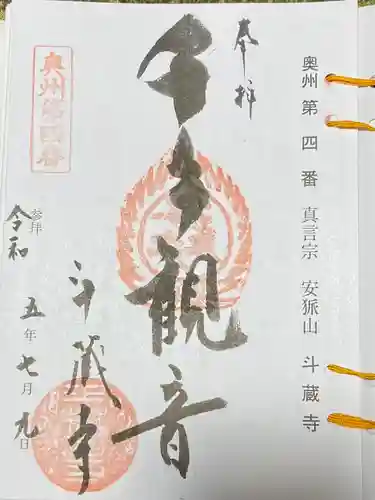 奥州 第 四 番 真言宗 安狐山 斗蔵寺
奉拝
千手観音
斗蔵寺
奥州第四番
参拝
令和 五年 七月 九日